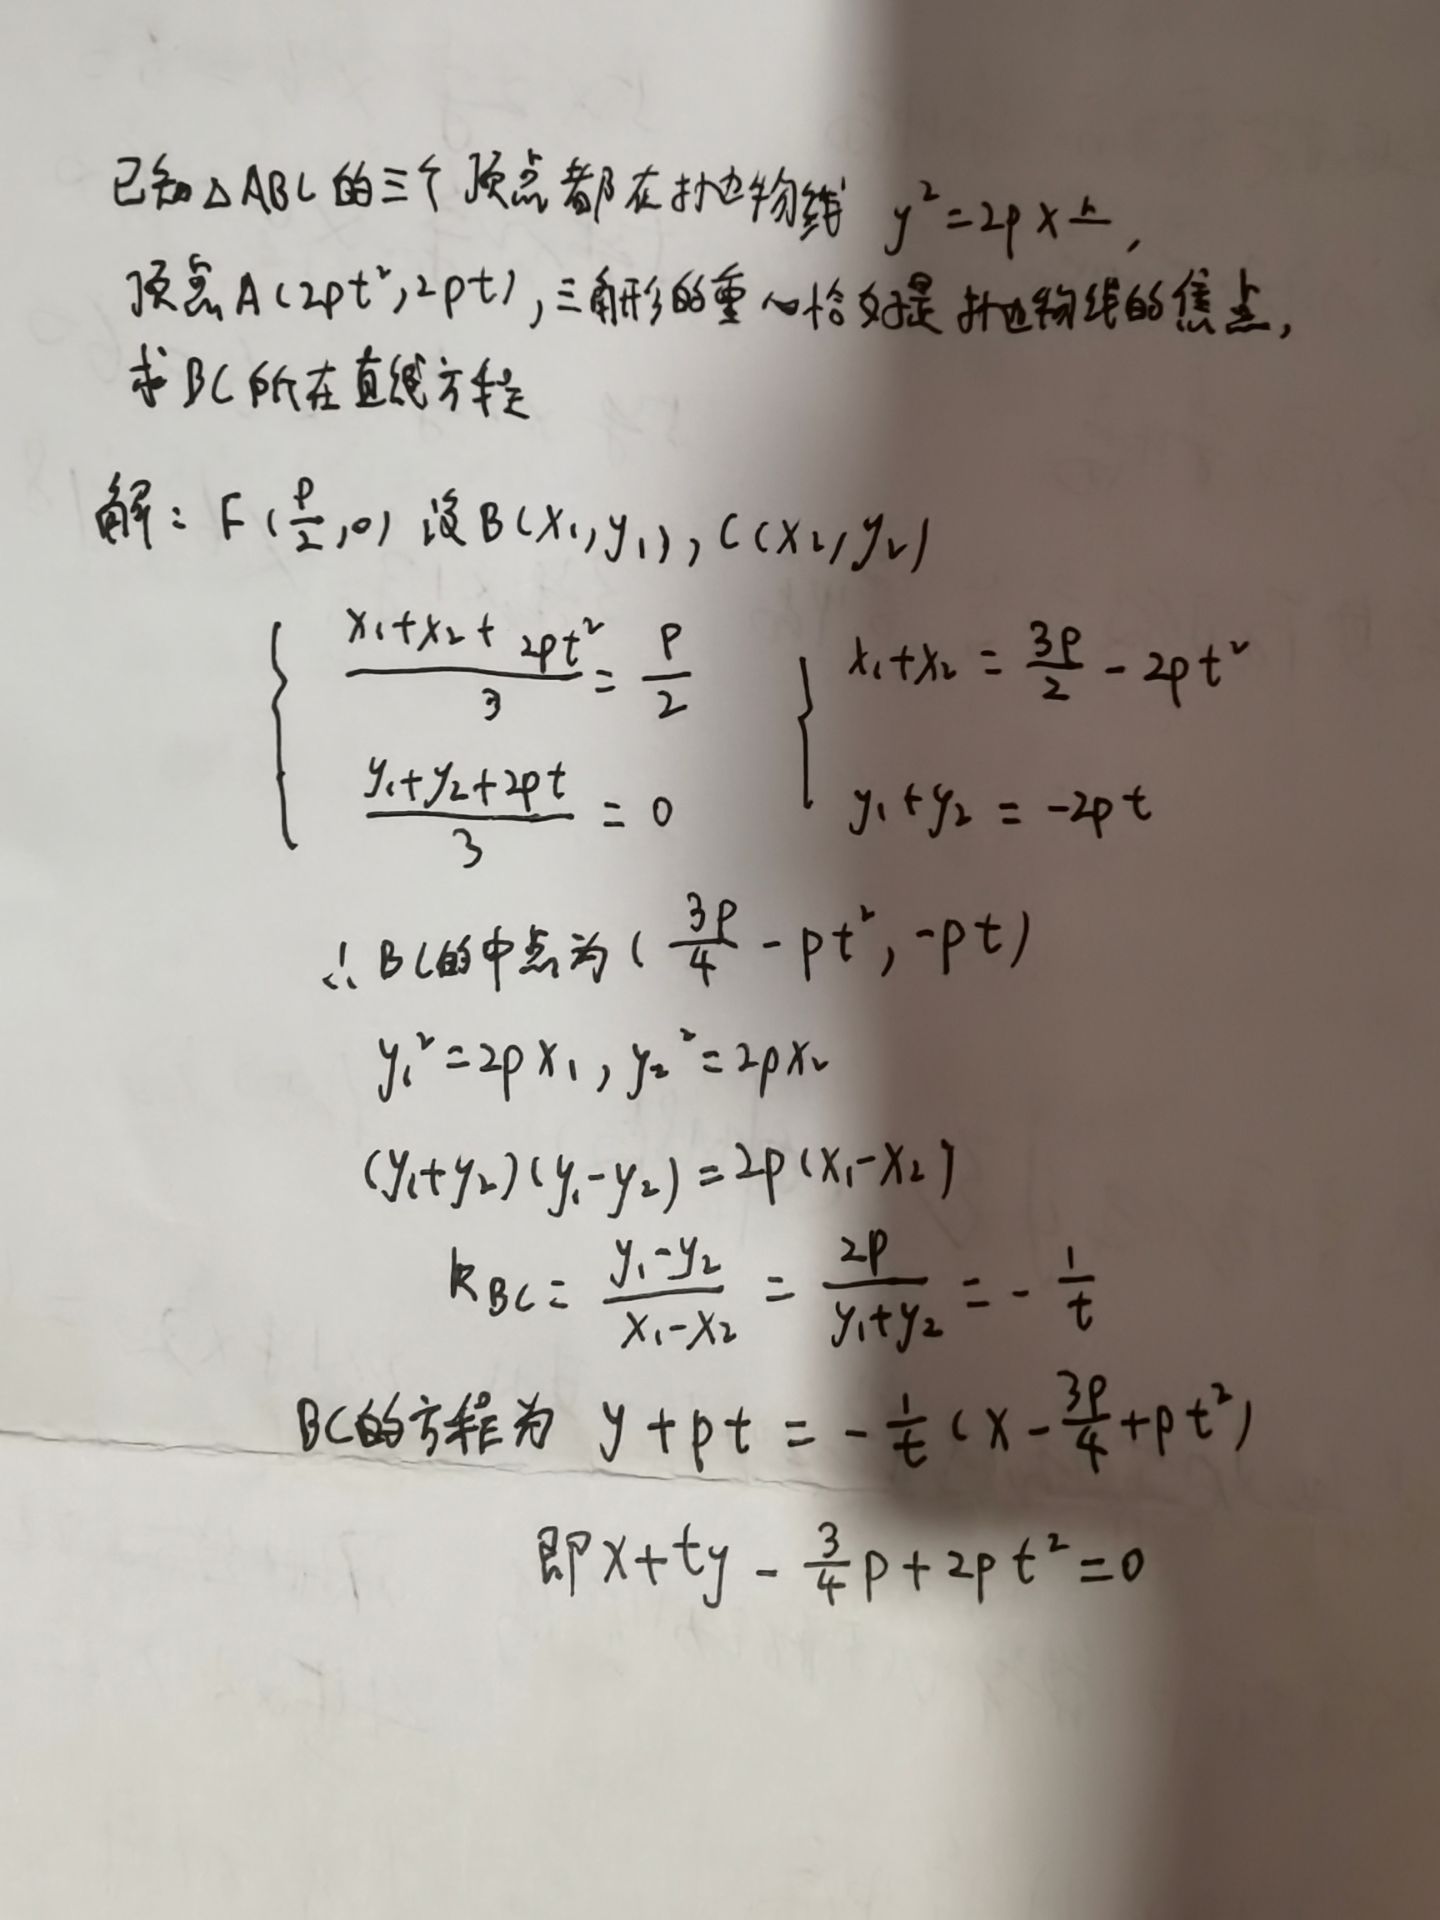 已知△ABC的三个顶点都在抛物线 y²=2px上,
顶点A(2pt²,2pt),三角形的重心恰好是抛物线的焦点,
求BC所在直线方程
解: F(p/2,0) 设B(x₁,y₁),C(x₂,y₂)
{ (x₁+x₂+2pt²)/3 = p/2 { x₁+x₂ = 3p/2 - 2pt²
(y₁+y₂+2pt)/3 = 0 y₁+y₂ = -2pt
∴BC的中点为(3p/4 - pt², -pt)
y₁²=2px₁, y₂²=2px₂
(y₁+y₂)(y₁-y₂)=2p(x₁-x₂)
k_BC = (y₁-y₂)/(x₁-x₂) = 2p/(y₁+y₂) = -1/t
BC的方程为 y+pt = -1/t(x - 3p/4 + pt²)
即x+ty - 3/4 p + 2pt² = 0